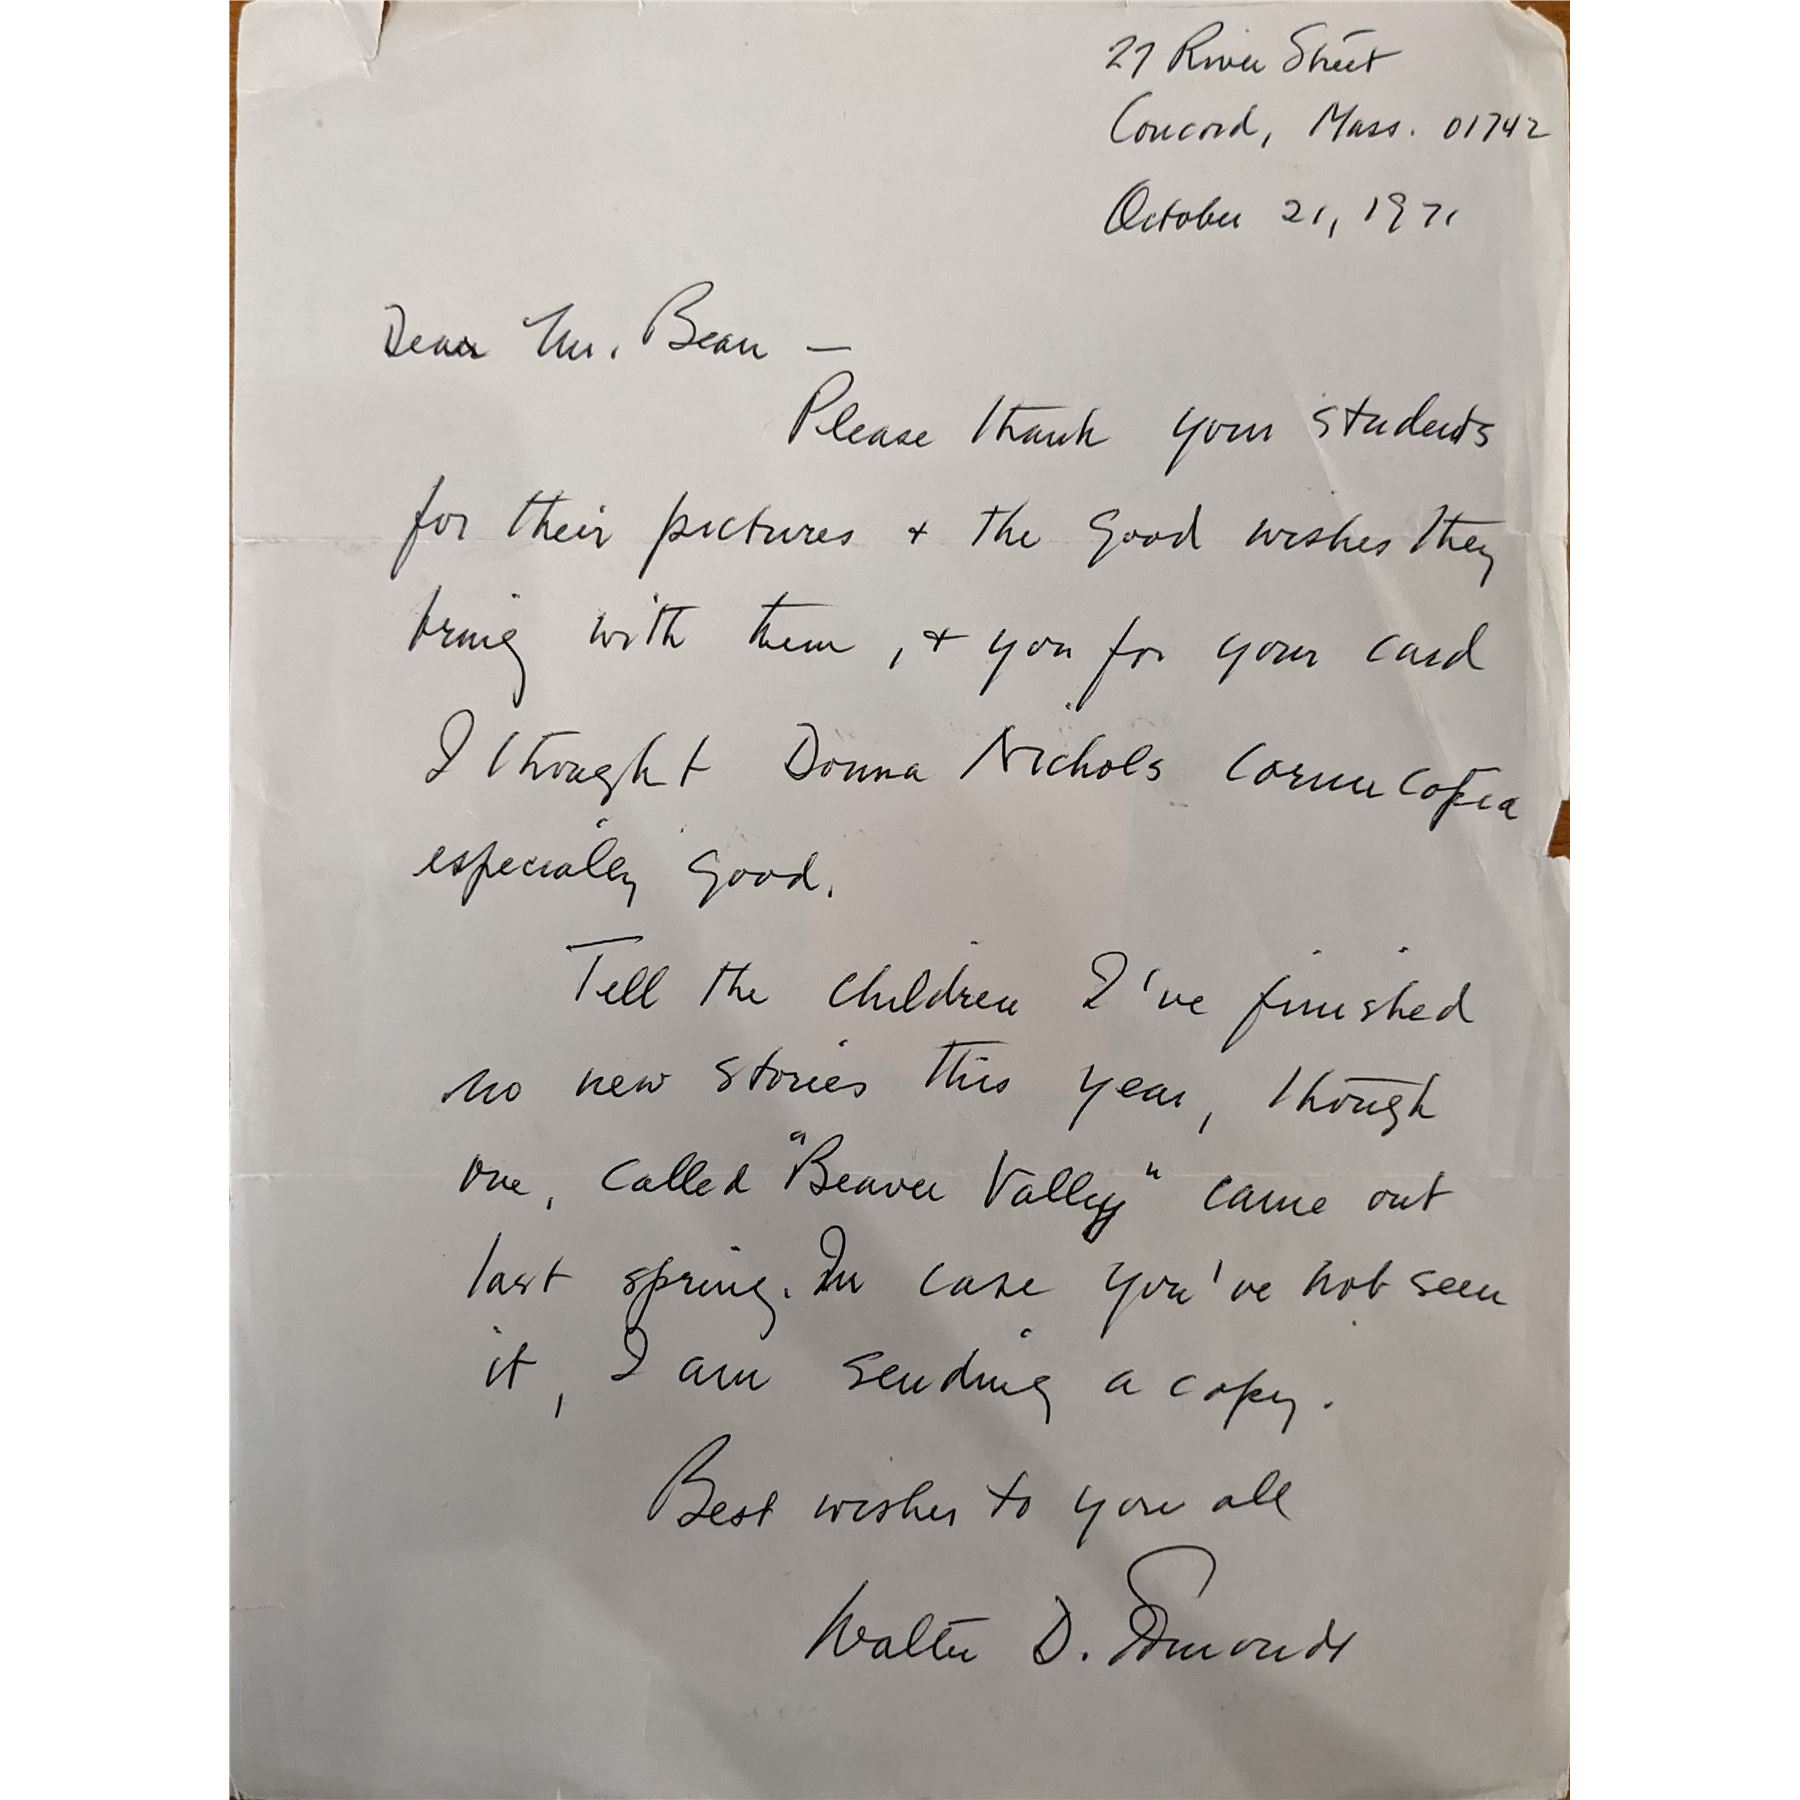 27 River Street
Concord, Mass. 01742
October 21, 1971
Dear Mr. Bean —
Please thank your students
for their pictures + the good wishes they
bring with them, + you for your card
I thought Donna Nichols cornucopia
especially good.
Tell the children I've finished
no new stories this year, though
one, called "Beaver Valley" came out
last spring. In case you've not seen
it, I am sending a copy.
Best wishes to you all
Walter D. Edmonds